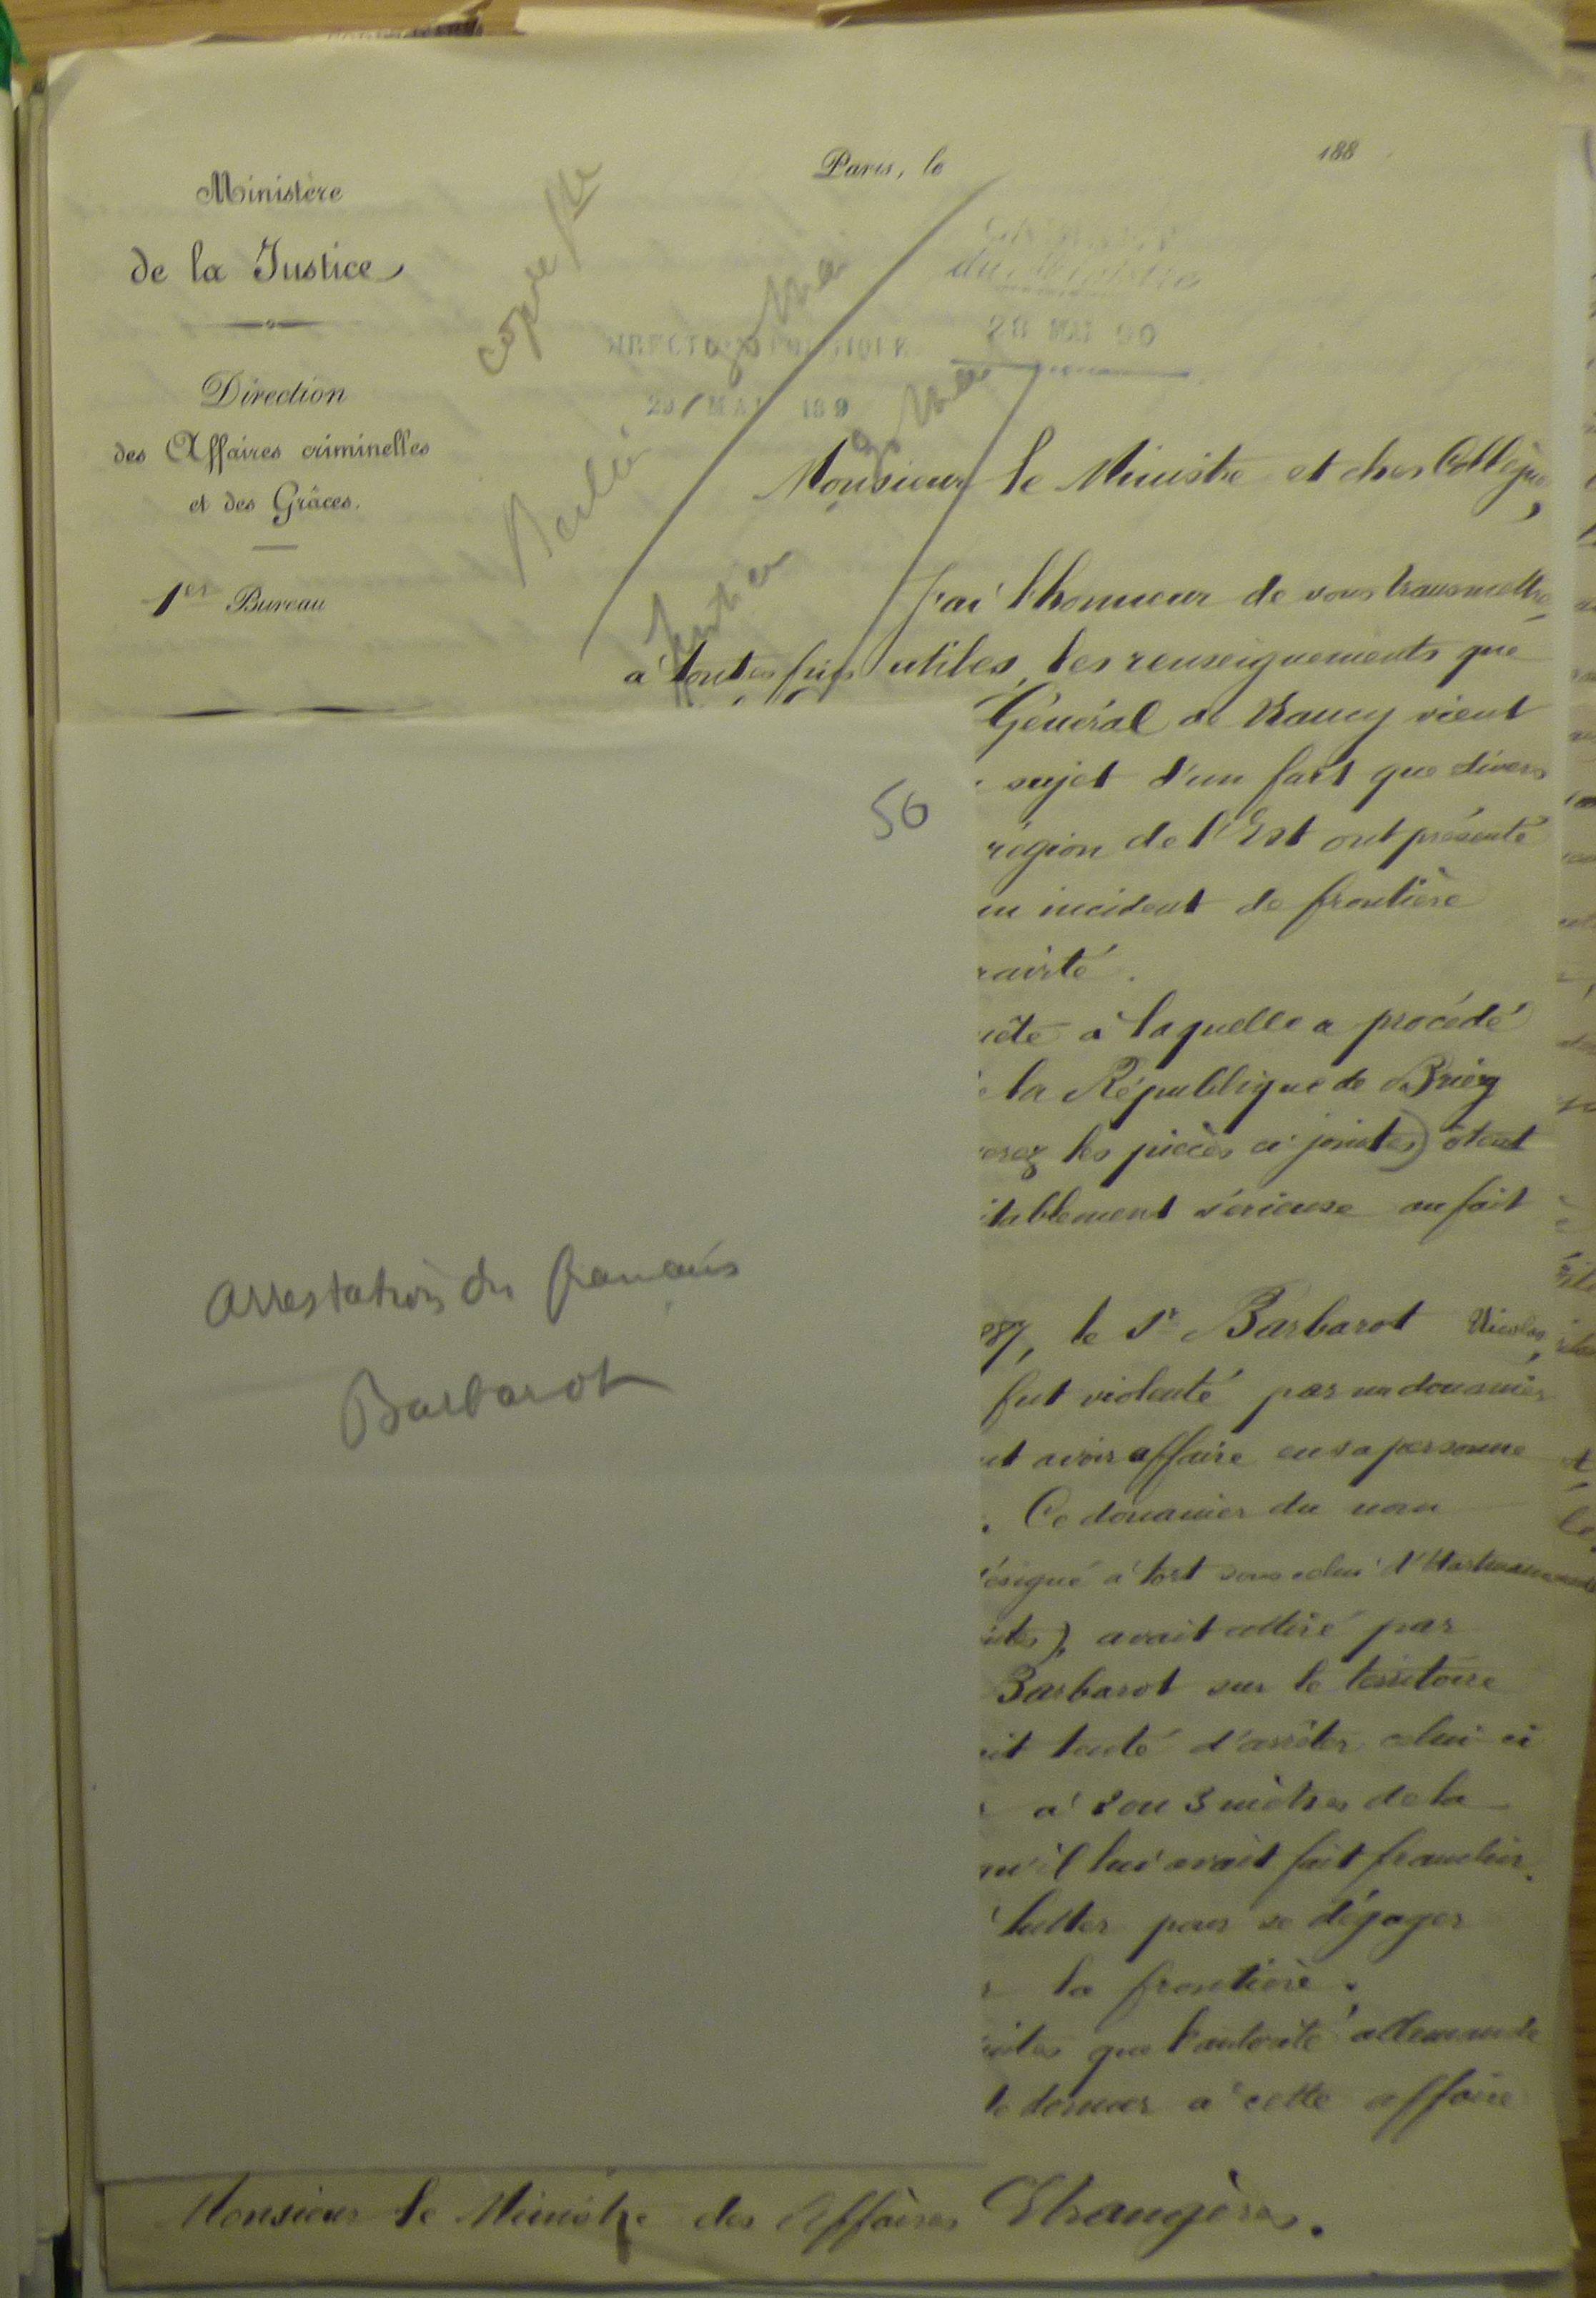 Paris, le 188
Ministère
de la Justice
Direction
des Affaires criminelles
et des Grâces.
1er Bureau
copie
Berlin 30 Mai
Justice 30 Mai
CABINET
du Ministre
28 MAI 90
DIRECTION POLITIQUE
29 MAI 189
Monsieur le Ministre et cher Collègue,
J'ai l'honneur de vous transmettre,
à toutes fins utiles, les renseignements que
Général de Nancy vient
sujet d'un fait que divers
région de l'Est ont présenté
un incident de frontière
ravité.
uête à laquelle a procédé
la République de Briey
verez les pièces ci-jointes) ôtent
itablement sérieuse au fait
87, le Sr Barbarot Nicolas,
fut violenté par un douanier
ut avoir affaire en sa personne
. Ce douanier du nom
ésigné à tort sous celui d'Hartmann
intes), avait attiré par
Barbarot sur le territoire
it tenté d'arrêter celui-ci
à 2 ou 3 mètres de la
qu'il lui avait fait franchir.
lutter pour se dégager
r la frontière.
uites que l'autorité allemande
de donner à cette affaire
50
Arrestation du français
Barbarot
Monsieur le Ministre des Affaires Etrangères.